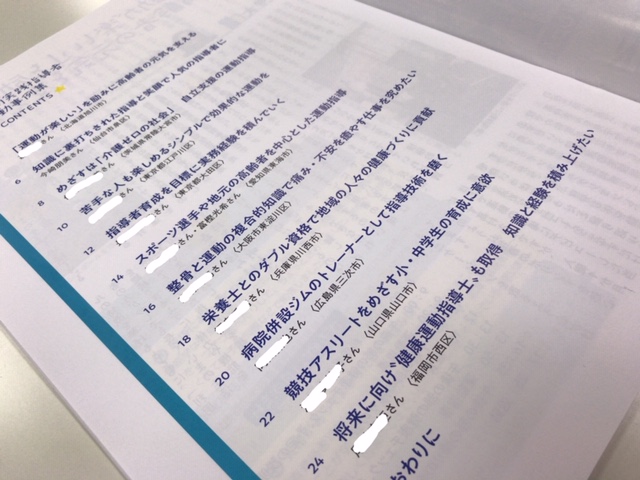 CONTENTS
「運動が楽しい」を励みに高齢者の元気を支える
さん（北海道旭川市）
6 知識に裏打ちされた指導と実績で人気の指導者に
さん（仙台市泉区）
8 めざすは「介護ゼロの社会」 自立支援の運動指導
さん
10 苦手な人も楽しめるシンプルで効果的な運動を
さん（東京都江戸川区）
12 指導者育成を目標に実務経験を積んでいく
さん（東京都大田区）
14 スポーツ選手や地元の高齢者を中心とした運動指導
さん・富樫光希さん（愛知県東海市）
16 整骨と運動の複合的知識で痛み・不安を癒やす仕事を究めたい
さん（大阪市東淀川区）
18 栄養士とのダブル資格で地域の人々の健康づくりに貢献
さん（兵庫県川西市）
20 病院併設ジムのトレーナーとして指導技術を磨く
さん（広島県三次市）
22 競技アスリートをめざす小・中学生の育成に意欲
さん（山口県山口市）
24 将来に向け“健康運動指導士”も取得 知識と経験を積み上げたい
さん（福岡市西区）
おわりに